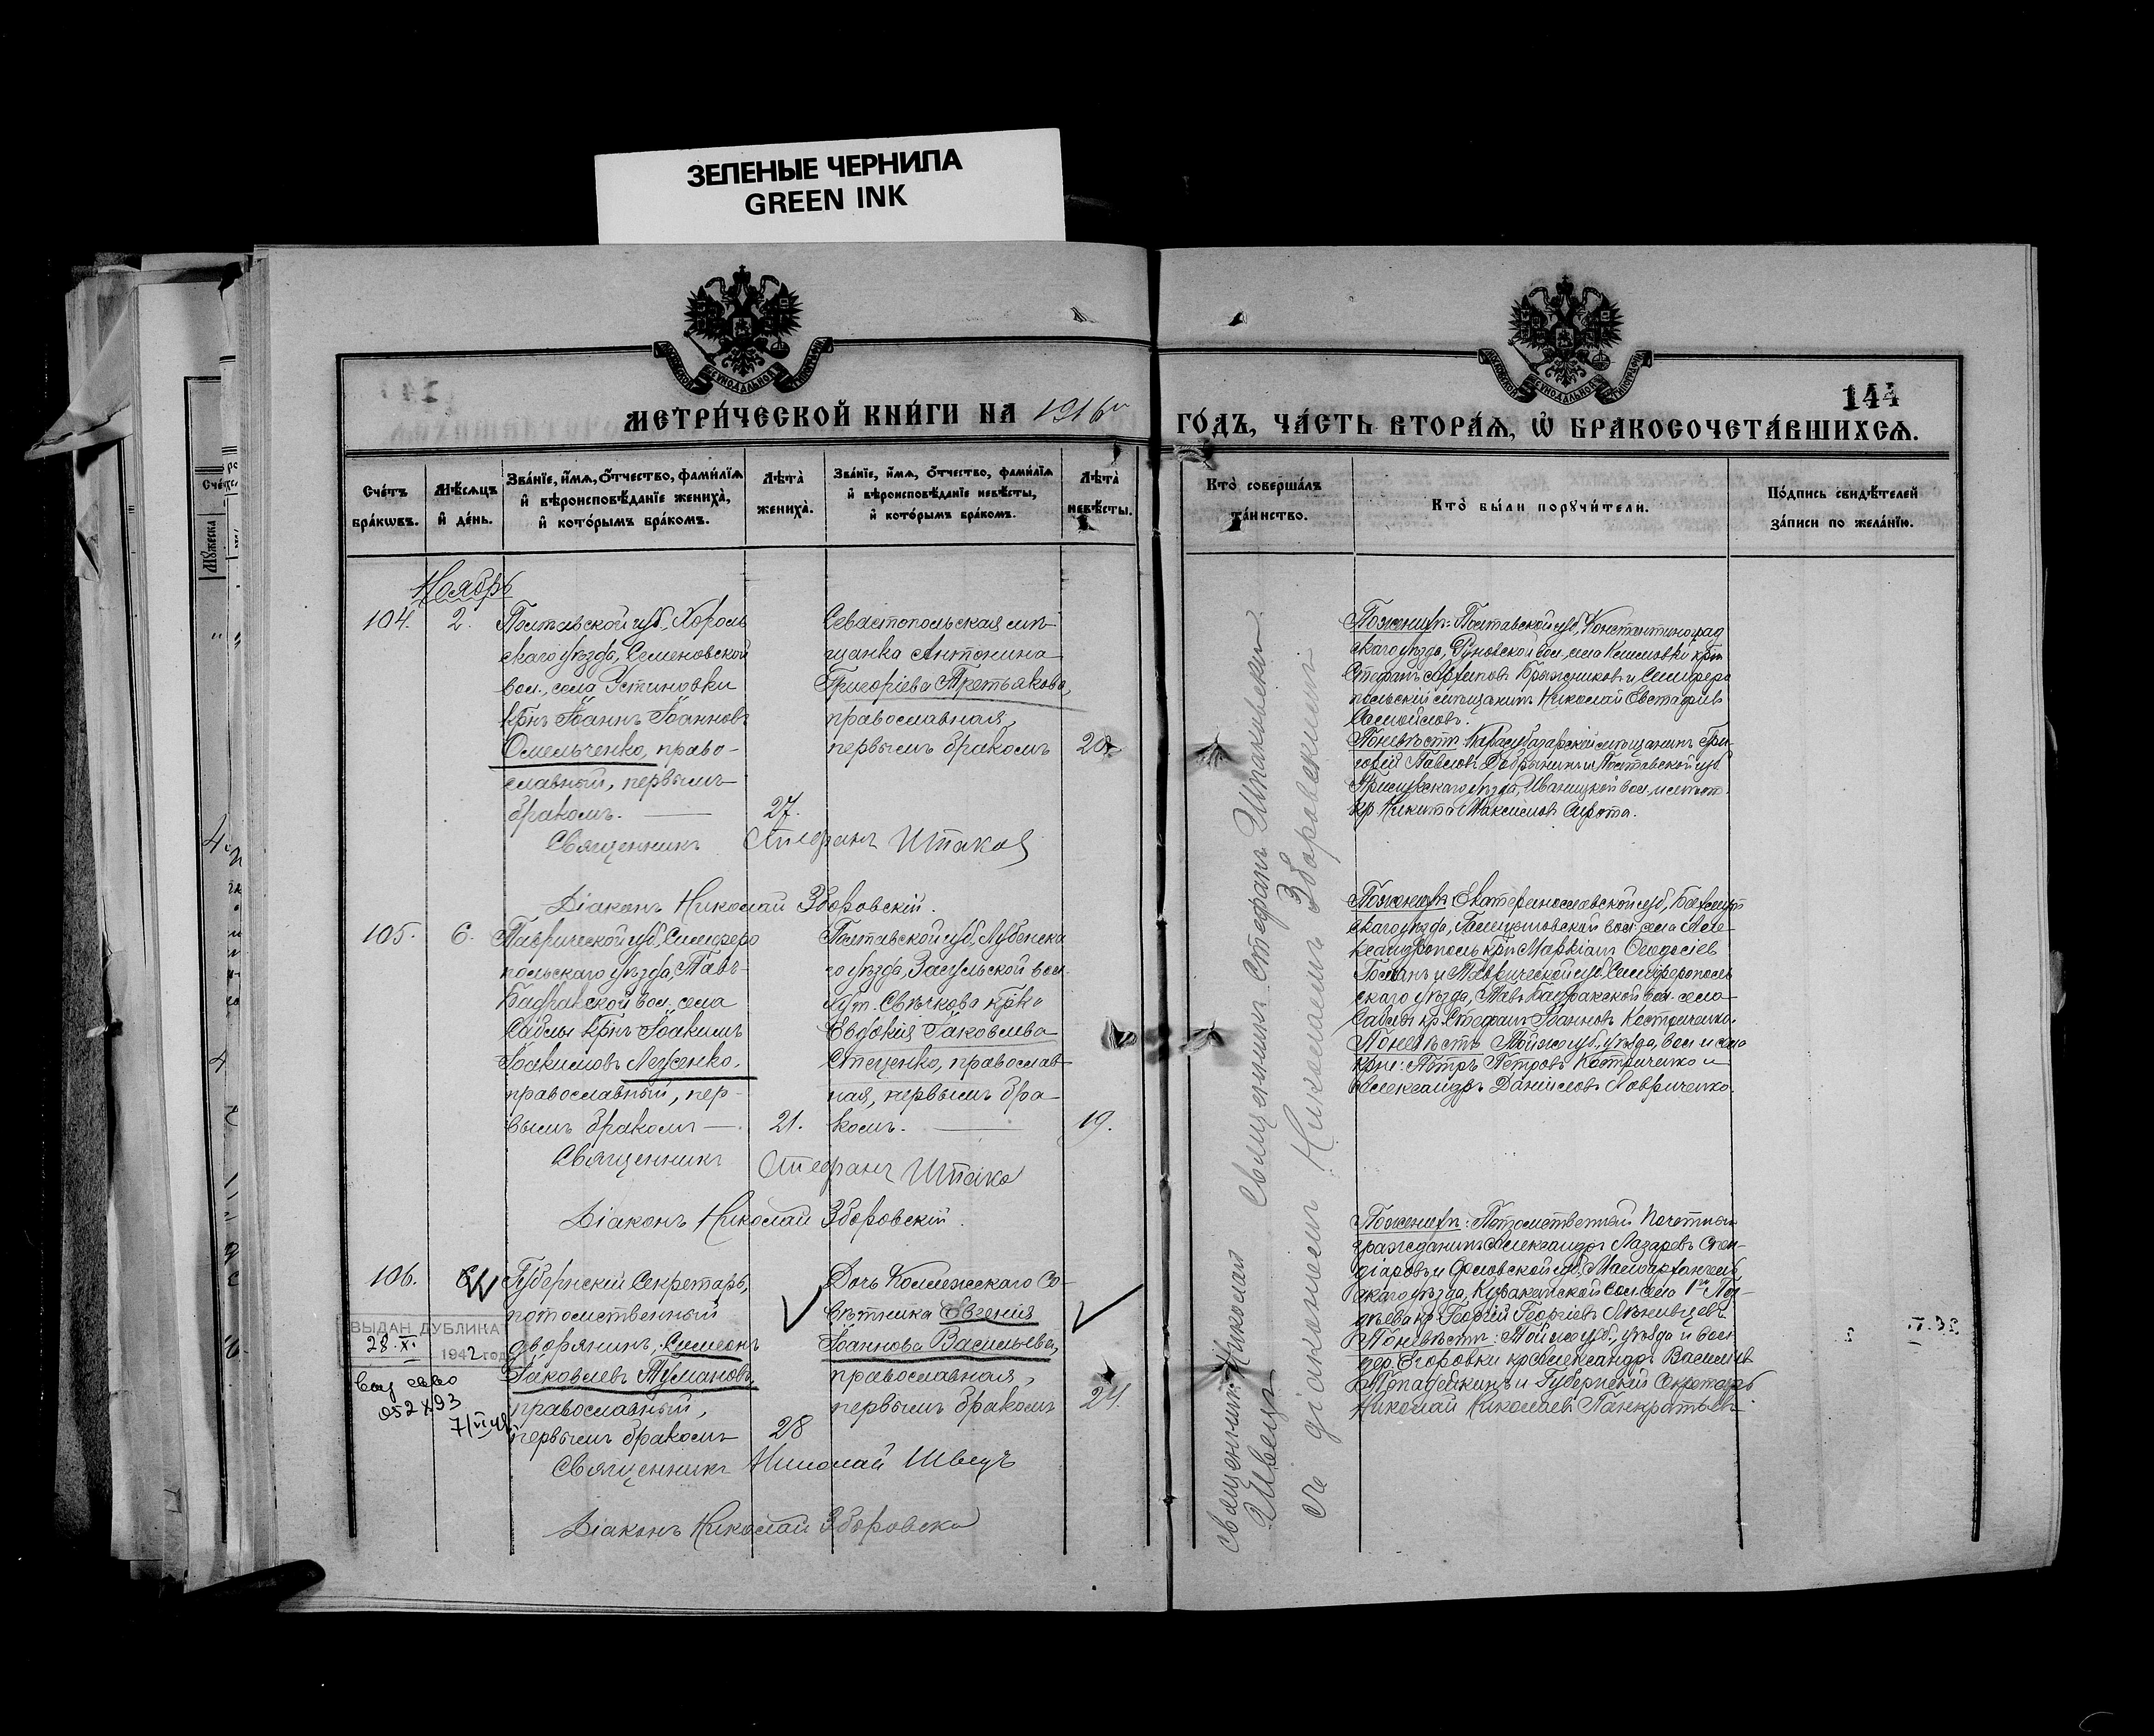 ЗЕЛЕНЫЕ ЧЕРНИЛА
GREEN INK
144
МЕТРИ́ЧЕСКОЙ КНИ́ГИ НА 1916й ГО́ДЪ, ЧА́СТЬ ВТОРА́Я, Ѽ БРАКОСОЧЕТА́ВШИХСЯ.
Сче́тъ бра́кѡвъ.
Мѣ́сяцъ и҆ де́нь.
Зва́нїе, и҆́мѧ, о҆́тчество, фами́лїѧ и҆ вѣроисповѣ́данїе жениха̀, и҆ кото́рымъ бра́комъ.
Лѣта̀ жениха̀.
Зва́нїе, и҆́мѧ, о҆́тчество, фами́лїѧ и҆ вѣроисповѣ́данїе невѣ́сты, и҆ кото́рымъ бра́комъ.
Лѣта̀ невѣ́сты.
Кто̀ соверша́лъ та́инство.
Кто̀ бы́ли порꙋчи́тели.
По́дпись свидѣ́телей за́писи по жела́нїю.
Ноябрь
104.
2.
Полтавской губ., Хороль
скаго уѣзда, Семеновской
вол., села Устиновки
крнъ Іоаннъ Іоанновъ
Омельченко, право-
славный, первымъ
бракомъ.
27.
Севастопольская мѣ-
щанка Антонина
Григоріева Третьякова,
православная,
первымъ бракомъ
20.
Священникъ Стефанъ Шпаков
Діаконъ Николай Зборовскій.
Поженихѣ: Полтавской губ., Константиноград
скаго уѣзда,
Стефанъ Архиповъ и Симферо
польскій мѣщанинъ Николай Евстафіев
Самойловъ.
Поневѣстѣ: Карасубазарскій мѣщанинъ Гри-
горій Павловъ Добрынинъ и Полтавской губ
Прилукскаго уѣзда, Иваницкой вол. и мѣст.
кр Никита Максимовъ Сирота.
105.
6.
Таврической губ., Симферо
польскаго уѣзда, Тавъ-
Бадракской вол. села
Саблы крнъ Іоакимъ
Іоакимовъ
православный, пер-
вымъ бракомъ
21.
Полтавской губ., Лубенска
го уѣзда, Засульской вол.
хут. Свѣчкова крка
Евдокія Іаковлева
Стеценко, православ-
ная, первымъ бра-
комъ.
19.
Священникъ Стефанъ Шпако
Діаконъ Николай Зборовскій.
Поженихѣ: Екатеринославской губ, Бахмут
скаго уѣзда, вол. села Але-
ксандрополь крн Маркіанъ Ѳеодосіев
и Таврической губ, Симферополь
скаго уѣзда, Тавъ Бадракской вол. села
Саблы кр. Стефанъ Іоанновъ Костриченко.
Поневѣстѣ: Той же губ., уѣзда, вол и села
крне: Петръ Петровъ Костриченко и
Александръ Даниловъ Лавриченко.
106.
Губернскій Секретарь,
потомственный
дворянинъ, Симеонъ
Іаковлевъ Тумановъ,
православный,
первымъ бракомъ
28
Дочь Коллежскаго Со-
вѣтника Евгенія
Іоаннова Васильева,
православная,
первымъ бракомъ
24.
ВЫДАН ДУБЛИКАТ
28.XI. 1942 года
7/VI
Священникъ Николай Швецъ
Діаконъ Николай Зборовски
Поженихѣ: Потомственный почетный
гражданинъ Александръ Лазаревъ
и Орловской губ., Малоархангель
скаго уѣзда, вол. села 1го
кр. Георгій Георгіевъ
Поневѣстѣ: Той же губ., уѣзда и вол
дер. Егоровки кр Александръ Васильев
и Губернскій Секретарь
Николай Николаевъ Панкратьевъ.
Священникъ Стефанъ Шпаковски
Священникъ Николай
Швецъ
съ діакономъ Николаемъ Зборовскимъ